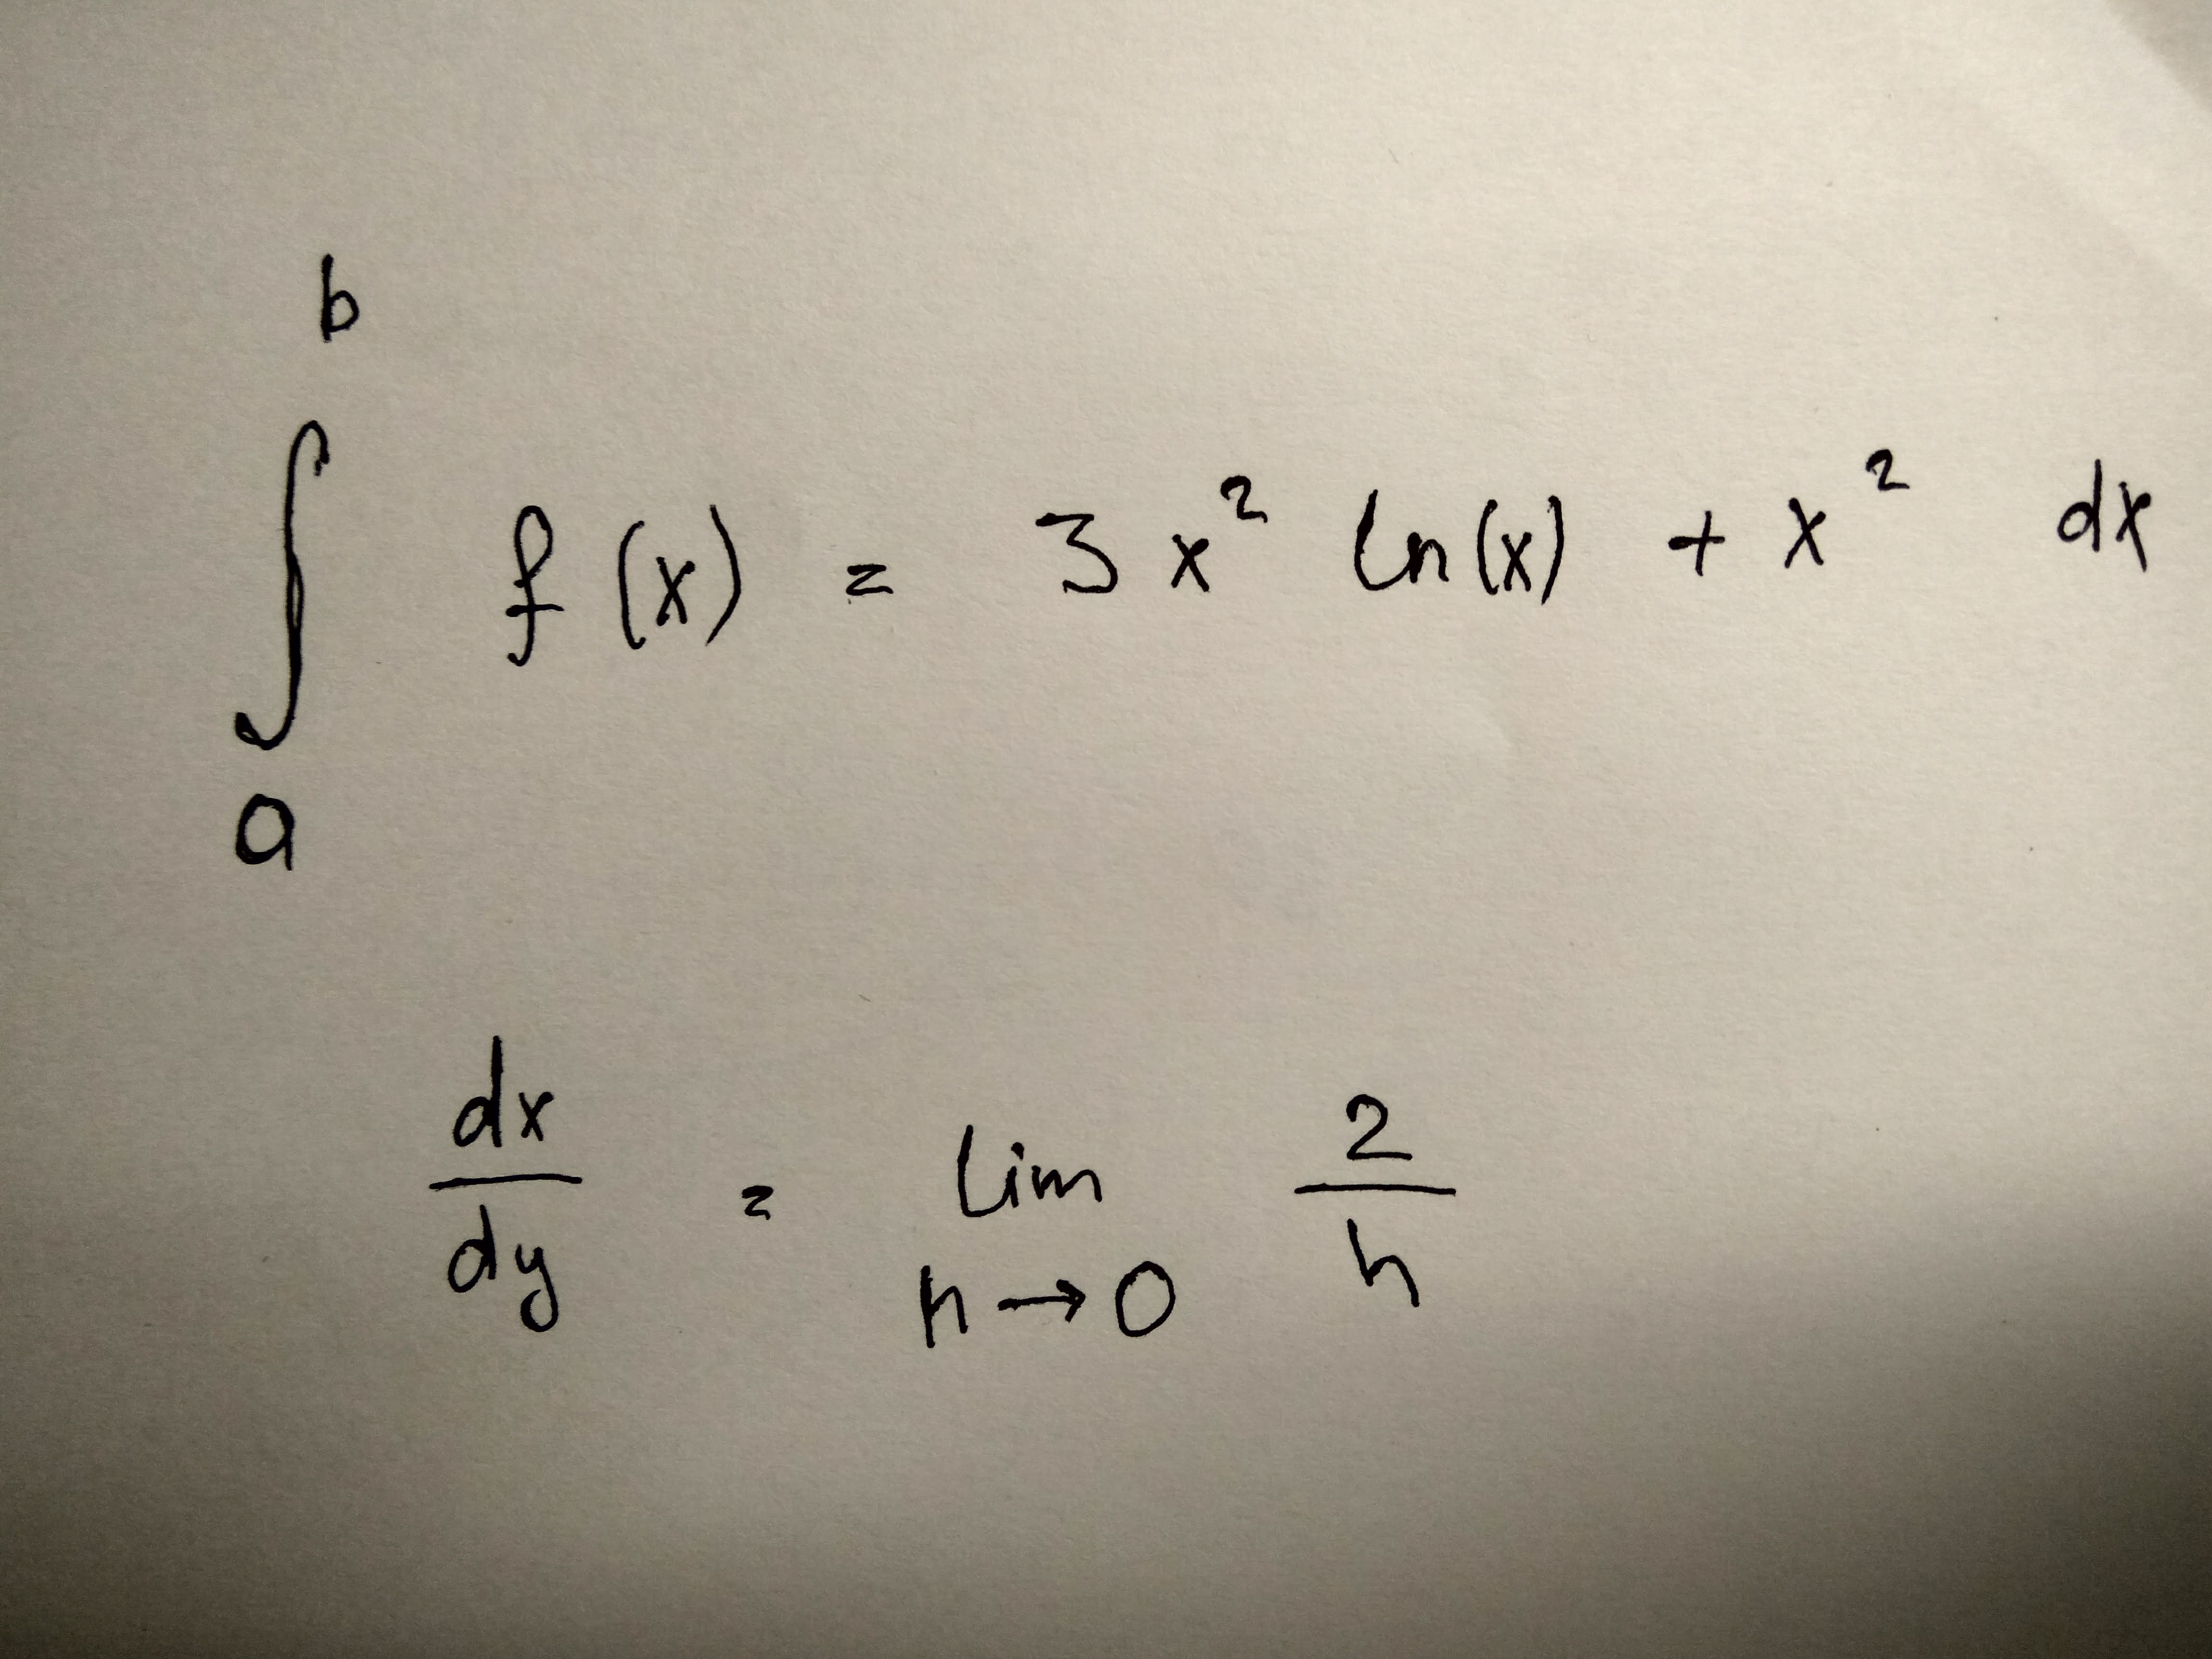 b
∫ f(x) = 3x² ln(x) + x² dx
a
dx/dy = lim h→0 2/h